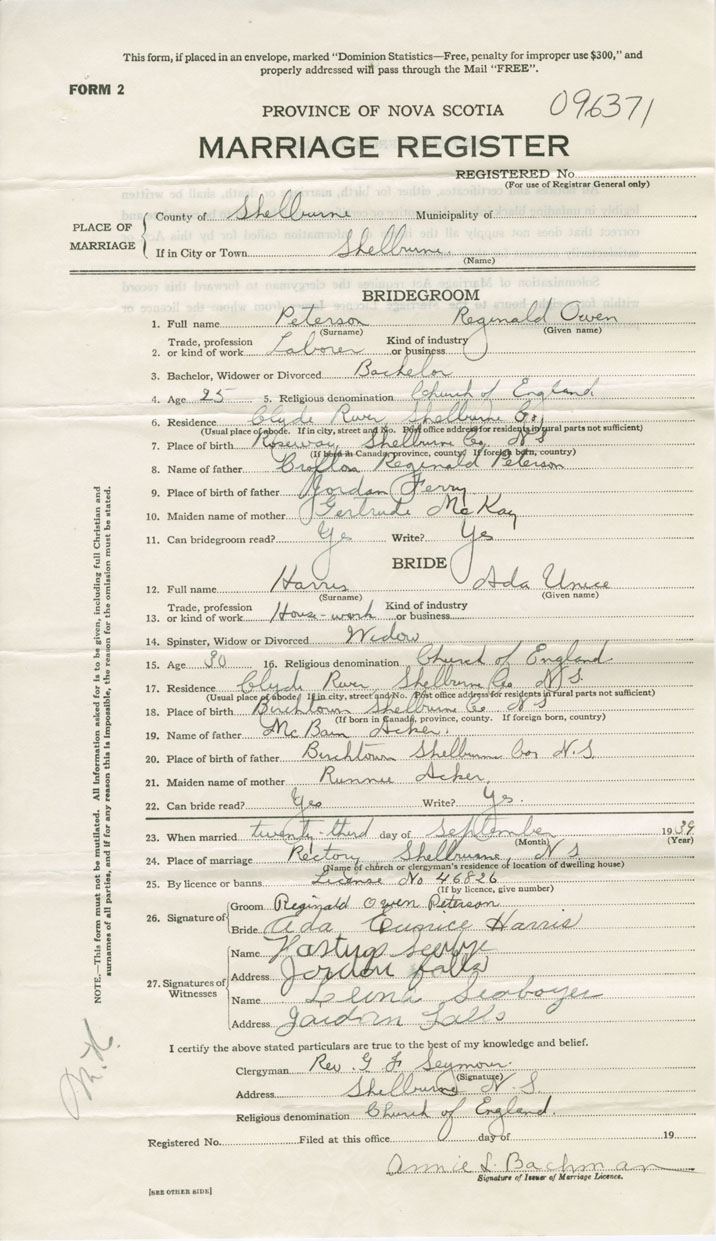 This form, if placed in an envelope, marked "Dominion Statistics—Free, penalty for improper use $300," and
properly addressed will pass through the Mail "FREE".
FORM 2
PROVINCE OF NOVA SCOTIA
096371
MARRIAGE REGISTER
REGISTERED No.
(For use of Registrar General only)
PLACE OF MARRIAGE
County of Shelburne Municipality of
If in City or Town Shelburne
(Name)
BRIDEGROOM
1. Full name Peterson Reginald Owen
(Surname) (Given name)
2. Trade, profession or kind of work Laborer Kind of industry or business
3. Bachelor, Widower or Divorced Bachelor
4. Age 25 5. Religious denomination Church of England
6. Residence Clyde River Shelburne Co.
(Usual place of abode. If in city, street and No. Post office address for residents in rural parts not sufficient)
7. Place of birth Roseway Shelburne Co, N S
(If born in Canada, province, county. If foreign born, country)
8. Name of father Crofton Reginald Peterson
9. Place of birth of father Jordan Ferry
10. Maiden name of mother Gertrude McKay
11. Can bridegroom read? Yes Write? Yes
BRIDE
12. Full name Harris Ada Unice
(Surname) (Given name)
13. Trade, profession or kind of work House-work Kind of industry or business
14. Spinster, Widow or Divorced Widow
15. Age 30 16. Religious denomination Church of England
17. Residence Clyde River Shelburne Co N S
(Usual place of abode. If in city, street and No. Post office address for residents in rural parts not sufficient)
18. Place of birth Birchtown Shelburne Co N S
(If born in Canada, province, county. If foreign born, country)
19. Name of father McBain Acker.
20. Place of birth of father Birchtown Shelburne Co N.S
21. Maiden name of mother Acker.
22. Can bride read? Yes Write? Yes.
23. When married twenty-third day of September 1939
(Month) (Year)
24. Place of marriage Rectory Shelburne, N S
(Name of church or clergyman's residence or location of dwelling house)
25. By licence or banns License No 46826
(If by licence, give number)
26. Signature of
Groom Reginald Owen Peterson
Bride Ada Eunice Harris
27. Signatures of Witnesses
Name Hastings
Address Jordon falls
Name Leona Seaboyer
Address Jordon Falls
I certify the above stated particulars are true to the best of my knowledge and belief.
Clergyman Rev. G F Seymour.
(Signature)
Address Shelburne N. S
Religious denomination Church of England.
Registered No. Filed at this office day of 19
Annie L Bachman
Signature of Issuer of Marriage Licence.
[SEE OTHER SIDE]
NOTE.—This form must not be mutilated. All information asked for is to be given, including full Christian and
surnames of all parties, and if for any reason this is impossible, the reason for the omission must be stated.